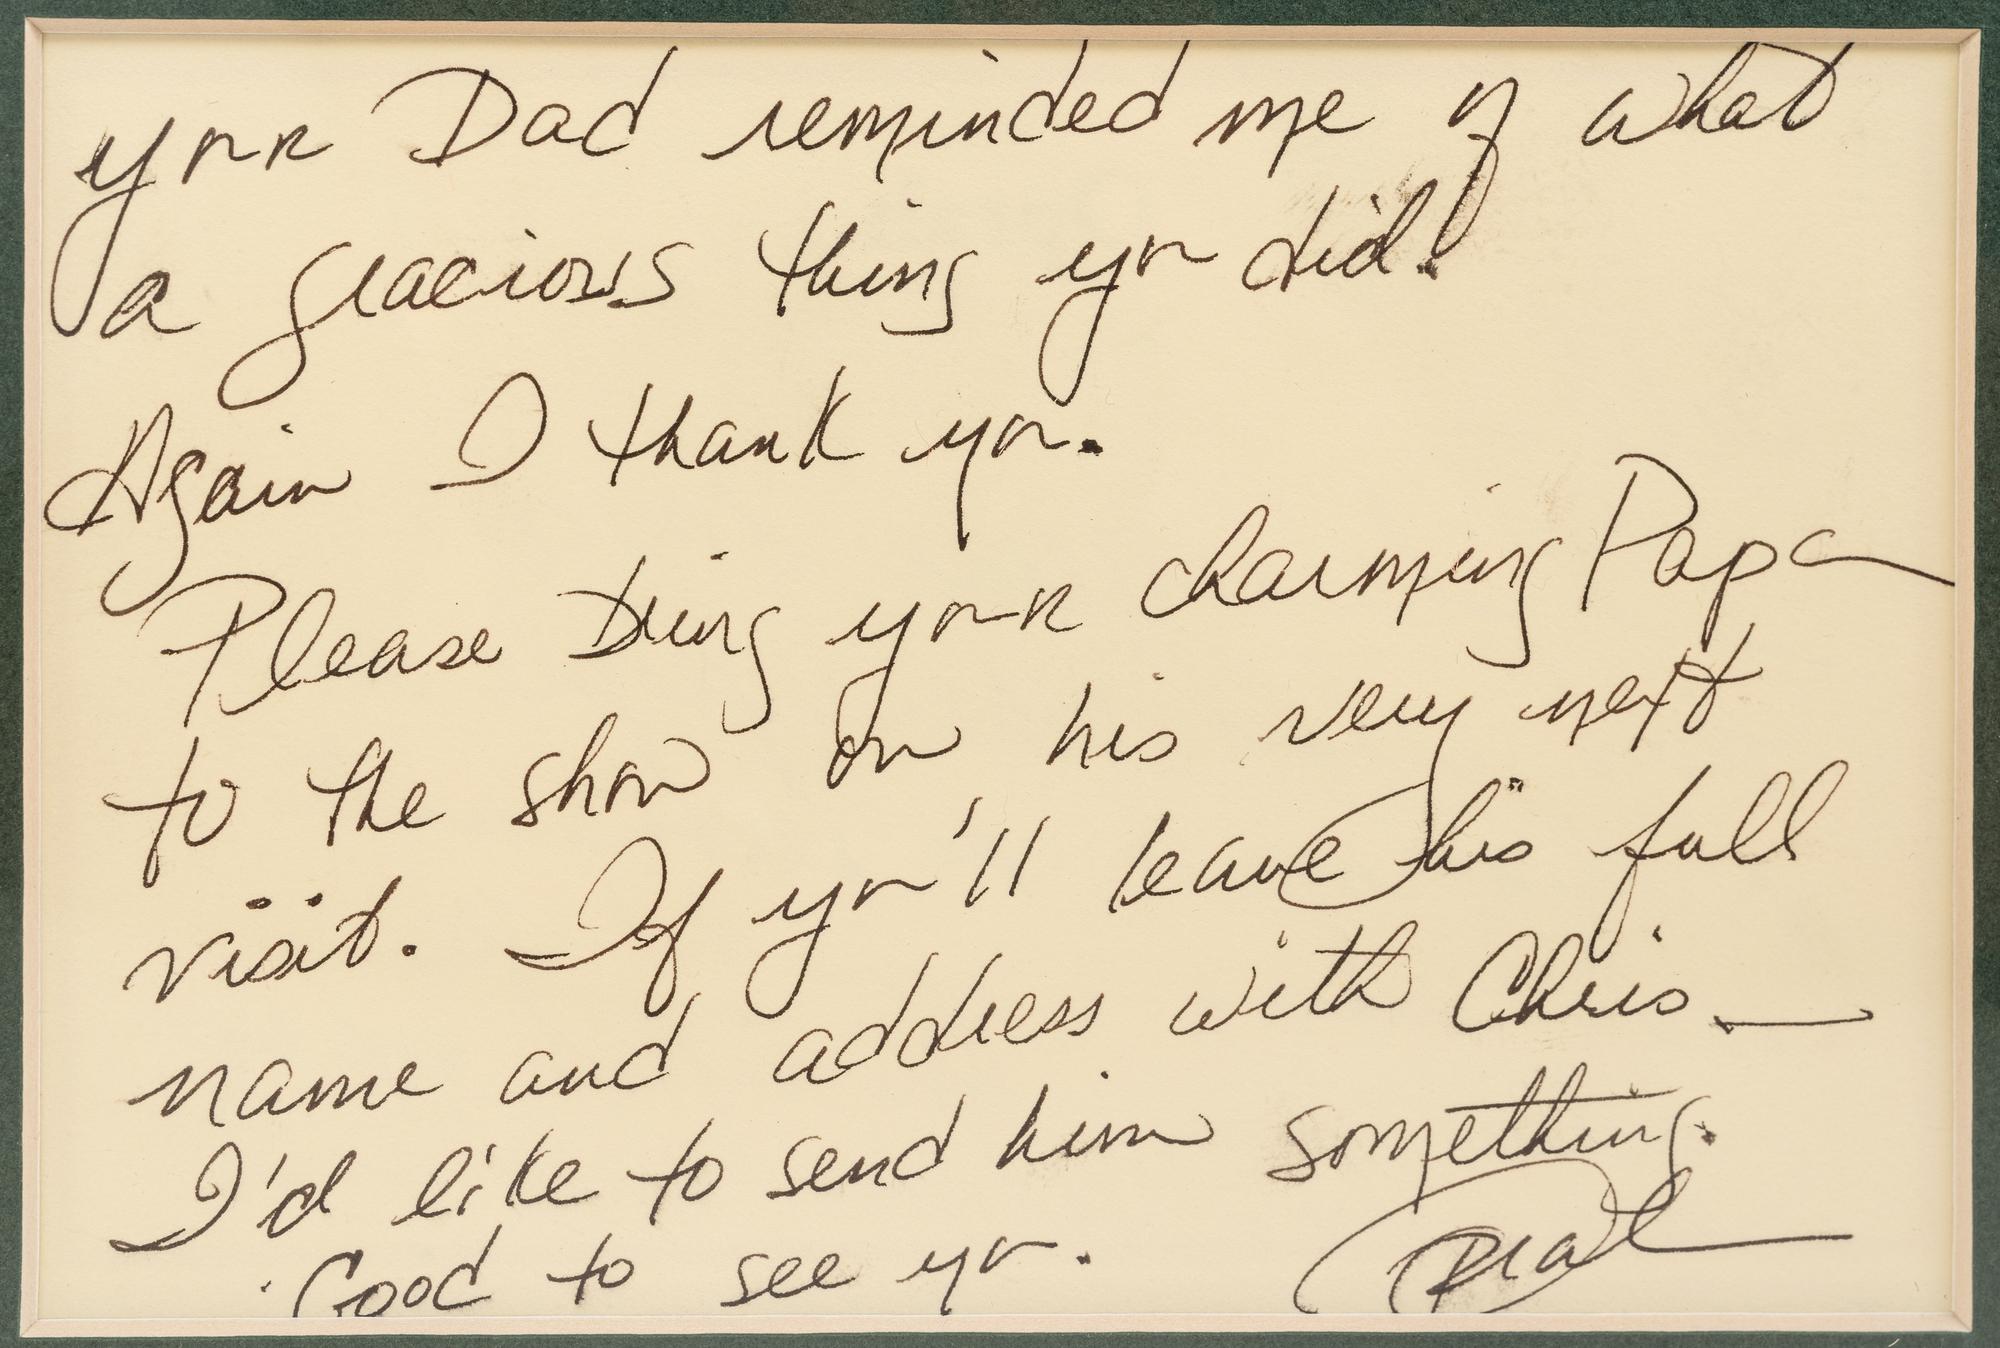 your Dad reminded me of what
a gracious thing you did.
Again I thank you.
Please bring your charming Papa
to the show on his very next
visit. If you'll leave his full
name and address with Chris_
I'd like to send him something.
Good to see you.